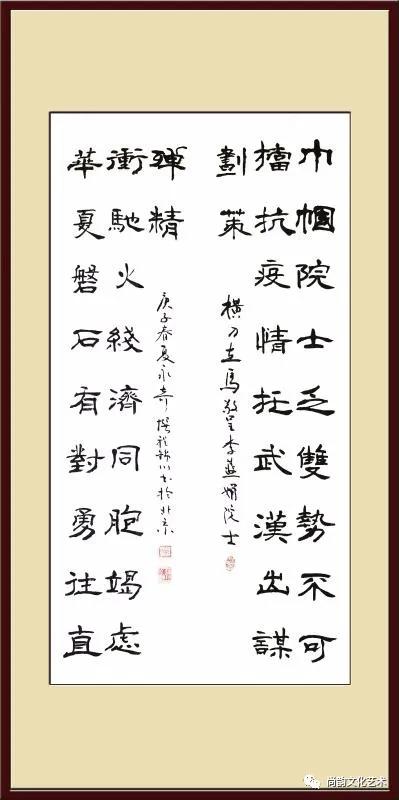 巾幗院士乏雙勢不可
擋抗疫情托武漢出謀
劃策
横刀立馬敬呈李蘭娟院士
華夏磐石有對勇往直
衝馳火綫濟同胞竭慮
殫精
庚子春夏永奇撰 书於北京
尚韵文化艺术